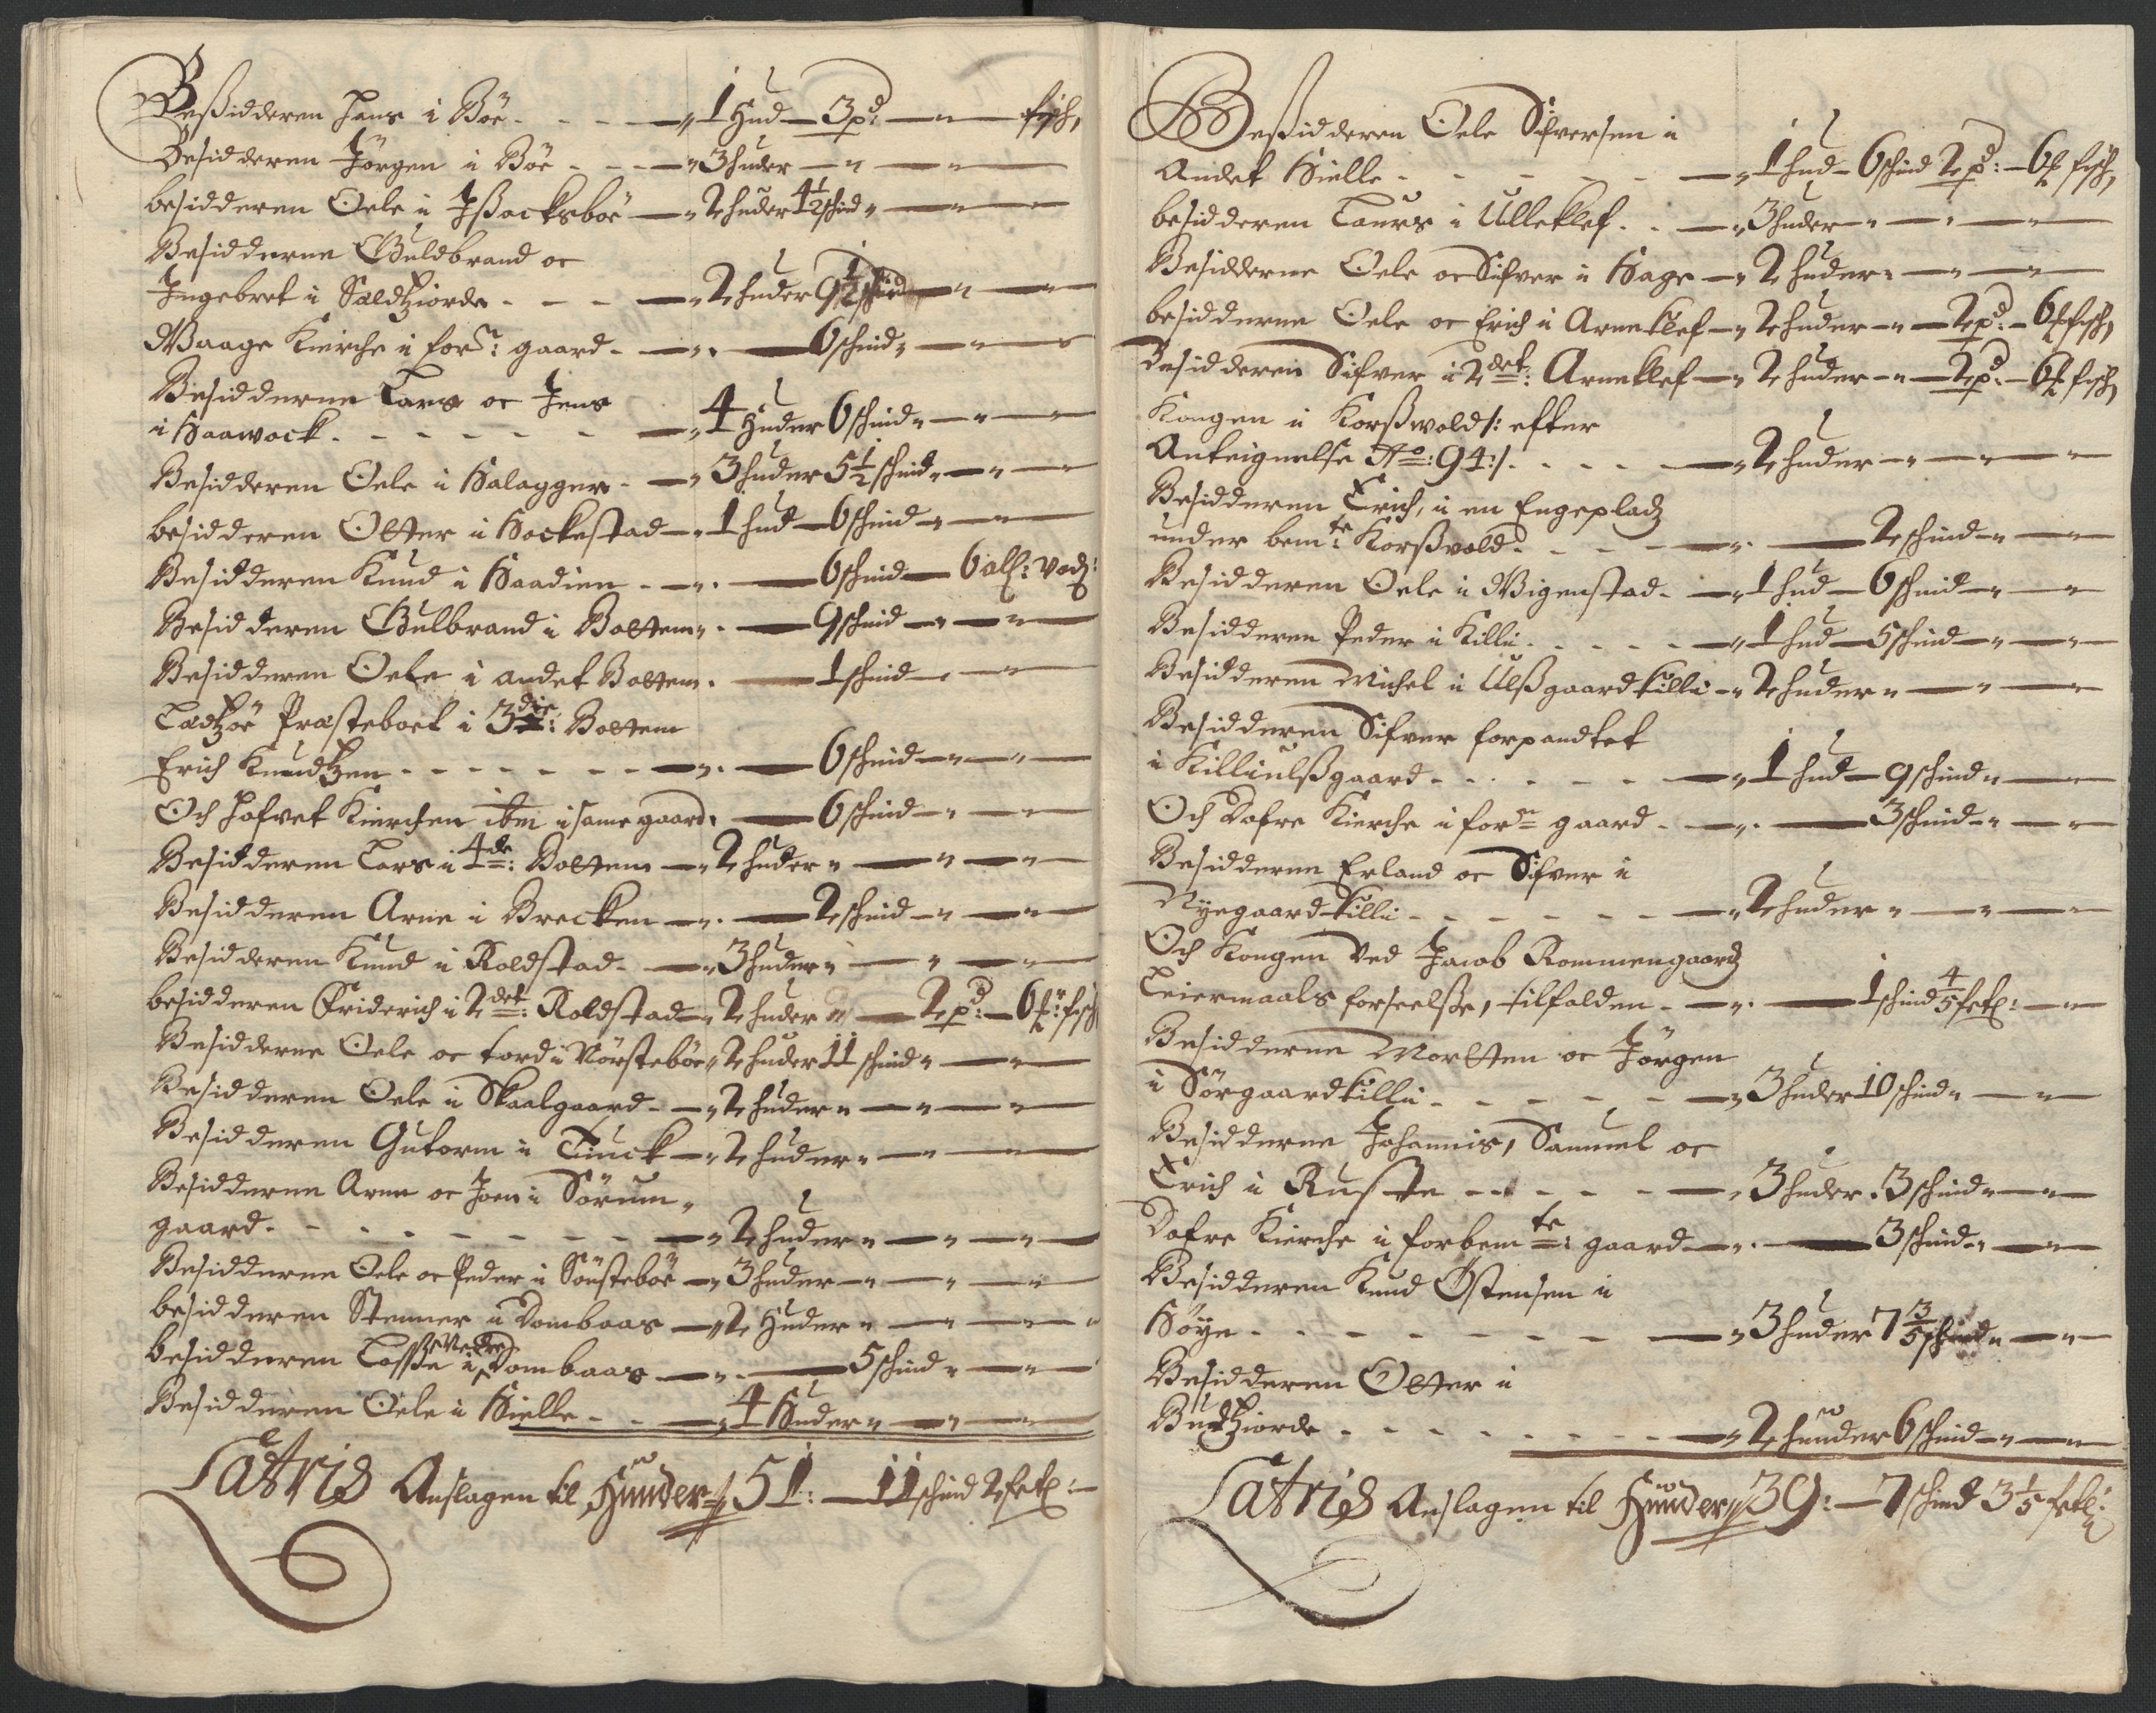 Beßidderen Hans i Böe - - - 1 Hud - 3 pd: - fisch,
Besidderen Jörgen i Böe - - - 3 huder
besidderen Oele i Jßacksboe - 2 huder 4 1/2 schind
Besidderne Guldbrand oc
Ingebret i Sældtziorde - - - 2 huder 9 1/2 schind
Waage Kierche i forn: gaard - 6 schind
Besidderne Lars oc Jens
i Haawock - - - 4 Huder 6 schind
Besidderen Oele i Halagger - 3 huder 5 1/2 schind
besidderen Otter i Hockestad - 1 hud - 6 schind
Besidderen Knud i Haadien - 6 schind - 6 all: vad:
Besidderen Gulbrand i Bottem - 9 schind
Besidderen Oele i andet Bottem - 1 schind
Ladtzöe Præsteboel i 3die: Bottem
Erich Knudtzen - - - 6 schind
Och Hofvet Kierchen ibm i same gaard - 6 schind
Besidderen Lars i 4de: Bottem - 2 huder
Besidderen Arne i Brecken - 2 schind
Besidderen Knud i Roldstad - 3 huder
besidderen Friderich i 2det: Roldstad - 2 huder - 2 pd: - 6 fisch
Besidderne Oele oc tord i Nörsteböe - 2 huder 11 schind
Besidderen Oele i Skaalgaard - 2 huder
Besidderen Gutorm i Tiuck - 2 huder
Besidderne Arne oc Joen i Sörum-
gaard - - - 2 huder
Besidderne Oele oc Peder i Söusteböe - 3 huder
besidderen Stenner i Dombaas - 2 Huder
besidderen Losße i Neder Dombaas - 5 schind
Besidderen Oele i Hielle - - 4 Huder
Latris Anslagen til Hunder 51: - 11 schind 2 fetl:
Beßidderen Oele Sifversen i
Andet Hielle - - - 1 hud - 6 schind 2 pd: - 6 fisch,
besidderen Laurs i Ulleklef - - 3 huder
Besidderne Oele oc Sifver i Hage - 2 huder
besidderne Oele oc Erich i Arneklef - 2 huder - 2 pd: - 6 fisch
Besidderen Sifver i 2det: Arneklef - 2 huder - 2 pd: - 6 fisch,
Kongen i Korßwold /: efter
Anteignelse Ao: 94:/ - - - 2 huder
Besidderen Erich, i en Engepladz
under bemte: Korßvold - - - 2 schind
Besidderen Oele i Wigenstad - 1 hud - 6 schind
Besidderen Peder i Killi - - - 1 hud - 5 schind
Besidderen Michel i Ulßgaard killi - 2 huder
Besidderen Sifver forpandtet
i Killiulßgaard - - - 1 hud - 9 schind
Och Dofre Kierche i forn gaard - 3 schind
Besidderne Erland oc Sifver i
Nyegaard killi - - - 2 huder
Och Kongen ved Jacob Rommengaardz
Leiermaals forseelsse, tilfalden - 1 schind 4/5 fetl:
Besidderne Morten oc Jörgen
i Sörgaard killi - - - 3 huder 10 schind
Besidderne Johannis, Samuel oc
Erich i Ruste - - - 3 huder 3 schind
Dofre Kierche i forbemte: gaard - 3 schind
Besidderen Knud Østensen i
Höye - - - 3 huder 7 3/5 schind
Besidderen Otter i
Budtziorde - - - 2 hunder 6 schind
Latris Anslagen til Hunder 39: - 7 schind 3 1/5 fetl: